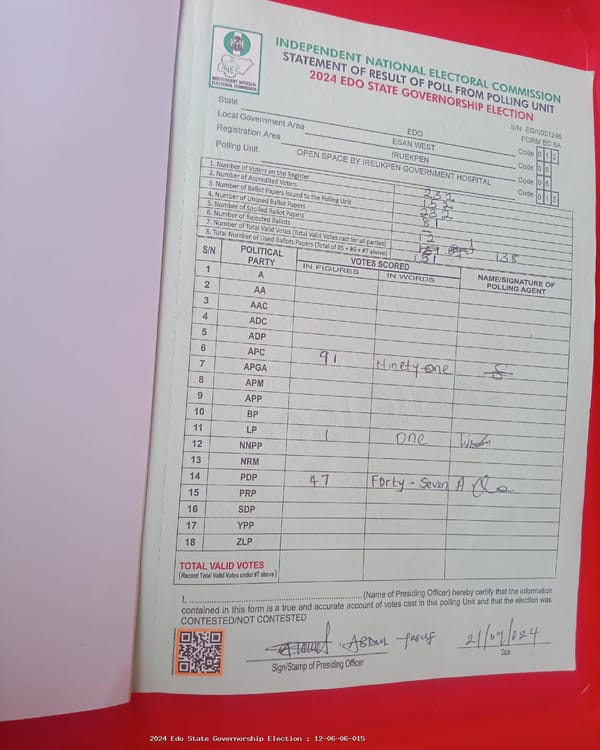 INDEPENDENT NATIONAL ELECTORAL COMMISSION
STATEMENT OF RESULT OF POLL FROM POLLING UNIT
2024 EDO STATE GOVERNORSHIP ELECTION
INEC
INDEPENDENT NATIONAL ELECTORAL COMMISSION
S/N: EG/0001246
FORM EC 8A
State EDO Code 0 1 2
Local Government Area ESAN WEST Code 0 6
Registration Area IRUEKPEN Code 0 6
Polling Unit OPEN SPACE BY IREUKPEN GOVERNMENT HOSPITAL Code 0 1 5
1. Number of Voters on the Register 232
2. Number of Accredited Voters 152
3. Number of Ballot Papers Issued to the Polling Unit 232
4. Number of Unused Ballot Papers 81
5. Number of Spoiled Ballot Papers
6. Number of Rejected Ballots 12
7. Number of Total Valid Votes (Total Valid Votes cast for all parties) 138
8. Total Number of Used Ballots Papers (Total of #5 + #6 + #7 above) 151
S/N POLITICAL PARTY VOTES SCORED NAME/SIGNATURE OF POLLING AGENT
IN FIGURES IN WORDS
1 A
2 AA
3 AAC
4 ADC
5 ADP
6 APC 91 Ninety-one
7 APGA
8 APM
9 APP
10 BP
11 LP 1 one
12 NNPP
13 NRM
14 PDP 47 Forty-Seven
15 PRP
16 SDP
17 YPP
18 ZLP
TOTAL VALID VOTES
(Record Total Valid Votes under #7 above)
I, (Name of Presiding Officer) hereby certify that the information
contained in this form is a true and accurate account of votes cast in this polling Unit and that the election was
CONTESTED/NOT CONTESTED
21/09/024
Sign/Stamp of Presiding Officer Date
2024 Edo State Governorship Election : 12-06-06-015